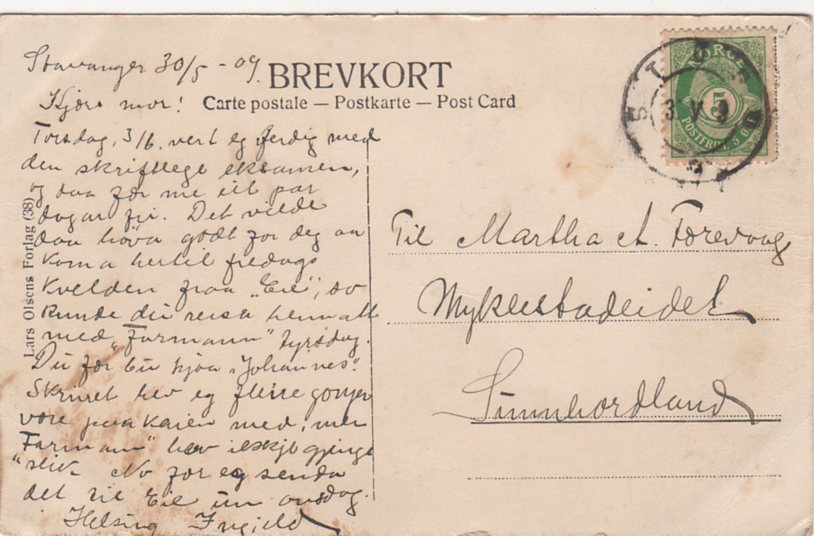 Stavanger 30/5 - 09.
BREVKORT
Carte postale — Postkarte — Post Card
Kjære mor!
Torsdag, 3/6. vert eg ferdig med
den skriftlege eksamen,
og daa fær me eit par
dagar fri. Det vilde
daa høva godt for deg aa
koma hertil fredags
kvelden fraa „Eie", so
kunde du reisa heimatt
med „Farmann" tysdag.
Du fær bu hjaa „Johannes".
Skrinet hev eg fleire gonger
vore paa kaien med, men
„Farmann" hev ikskje
slik. No fær eg senda
det til Eie um onsdag.
Helsing
Lars Olsens Forlag (38)
NORGE
5
POSTFRIM. 5 ØRE
Til Martha A. Torevaag
Myklestadeidet
Sunnhordland